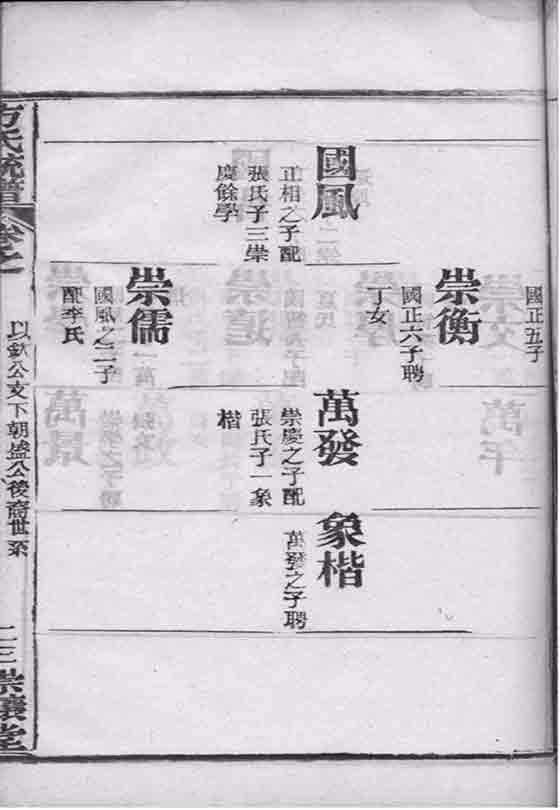 國風
正相之子配
張氏子三崇
慶餘學
國正五子
崇衡
國正六子聘
丁女
崇儒
國風之二子
配李氏
萬發
崇慶之子配
張氏子一象
楷
象楷
萬發之子聘
方氏統譜
卷之
以欽公支下朝盛公後裔世系
二三
崇讓堂